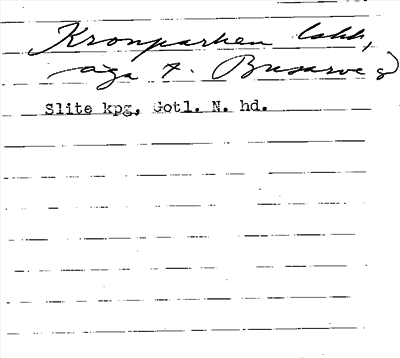 Kronparken lskh,
äga t. Busarve g)
Slite kpg, Gotl. N. hd.